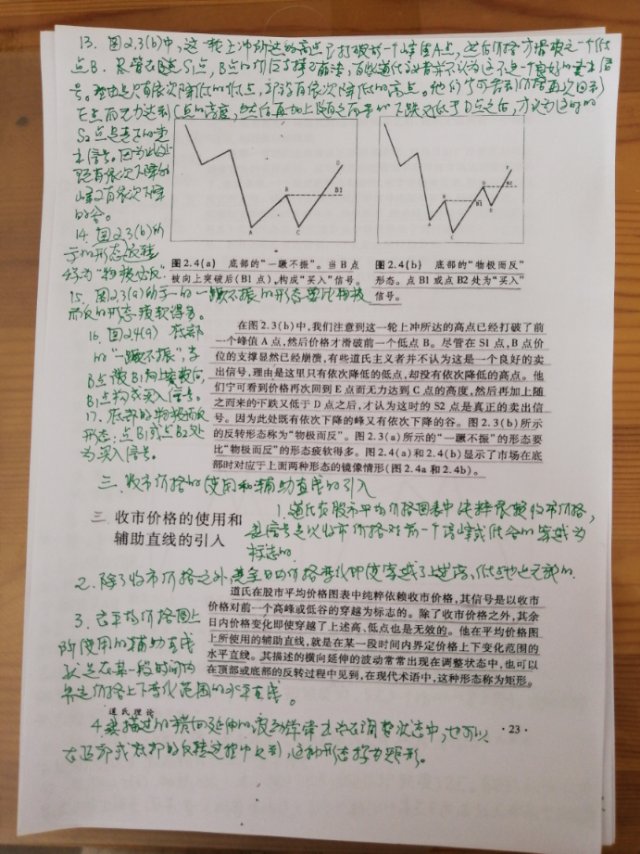 13. 图2.3(b)中,这一轮上冲所达的高点已打破前一个峰值A点,然后价格才滑破前一个低
点B。尽管在S1点,B点价位支撑已崩溃,有些道氏主义者并不认为这是一个良好的卖出信
号。理由是只有依次降低的低点,却没有依次降低的高点。他们宁可看到价格再次回到
E点而无力达到C点的高度,然后再加上随之而来的下跌又低于D点之后,才认为这时的
S2点是真正的卖
出信号。因为此处
既有依次下降的
峰又有依次下降
的谷。
14. 图2.3(b)所
示的形态被
称为“物极必反”
15. 图2.3(a)所示的“一蹶不振”的形态要比物极
而反的形态疲软得多。
16. 图2.4(a) 底部
的“一蹶不振”,当
B点被B1向上突破后,
B1点构成买入信号。
17. 底部的物极而反
形态:点B1或点B2处
为买入信号。
A
B
B1
C
D
A
B
B1
C
D
E
B2
F
图2.4(a) 底部的“一蹶不振”。当B点
被向上突破后(B1点),构成“买入”信号。
图2.4(b) 底部的“物极而反”
形态。点B1或点B2处为“买入”
信号。
在图2.3(b)中,我们注意到这一轮上冲所达的高点已经打破了前
一个峰值A点,然后价格才滑破前一个低点B。尽管在S1点,B点价
位的支撑显然已经崩溃,有些道氏主义者并不认为这是一个良好的卖
出信号,理由是这里只有依次降低的低点,却没有依次降低的高点。他
们宁可看到价格再次回到E点而无力达到C点的高度,然后再加上随
之而来的下跌又低于D点之后,才认为这时的S2点是真正的卖出信
号。因为此处既有依次下降的峰又有依次下降的谷。图2.3(b)所示
的反转形态称为“物极而反”。图2.3(a)所示的“一蹶不振”的形态要
比“物极而反”的形态疲软得多。图2.4(a)和2.4(b)显示了市场在底
部时对应于上面两种形态的镜像情形(图2.4a和2.4b)。
三、收市价格的使用和辅助直线的引入
三 收市价格的使用和
辅助直线的引入
1. 道氏在股市平均价格图表中纯粹依赖收市价格,
其信号是以收市价格对前一个高峰或低谷的穿越为
标志的。
2. 除了收市价格之外,其余日内价格变化即使穿越了上述高、低点也是无效的。
道氏在股市平均价格图表中纯粹依赖收市价格,其信号是以收市
价格对前一个高峰或低谷的穿越为标志的。除了收市价格之外,其余
日内价格变化即使穿越了上述高、低点也是无效的。他在平均价格图
上所使用的辅助直线,就是在某一段时间内界定价格上下变化范围的
水平直线。其描述的横向延伸的波动常常出现在调整状态中,也可以
在顶部或底部的反转过程中见到,在现代术语中,这种形态称为矩形。
3. 在平均价格图上
所使用的辅助直线
就是在某一段时间内
界定价格上下变化范围的水平直线。
道氏理论
·23·
4. 其描述的横向延伸的波动经常出现在调整状态中,也可以
在顶部或底部的反转过程中见到,这种形态称为矩形。